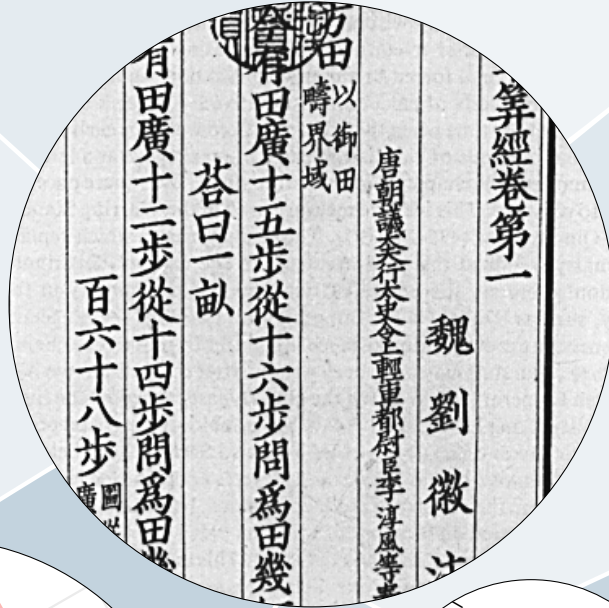 算經卷第一
魏 劉 徽 注
唐朝議大夫行太史令上輕車都尉臣李淳風等奉
方田以御田疇界域
今有田廣十五步從十六步問爲田幾
荅曰一畝
有田廣十二步從十四步問爲田幾
百六十八步圖從廣